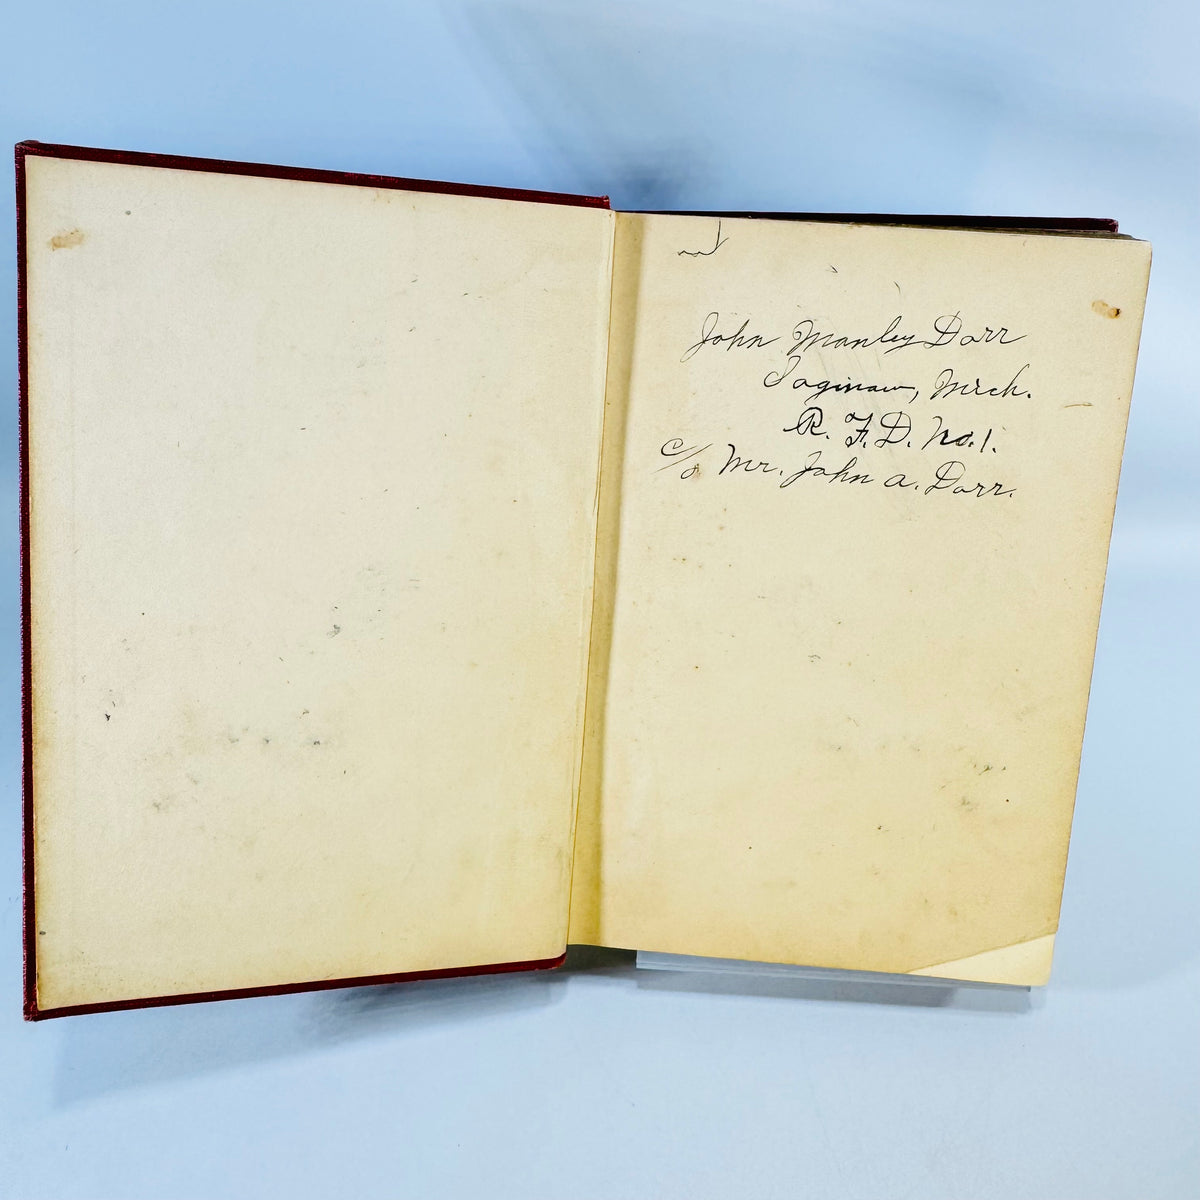 John Manley Dorr
Saginaw, Mich.
R. F. D. No. 1.
c/o Mr. John A. Dorr.